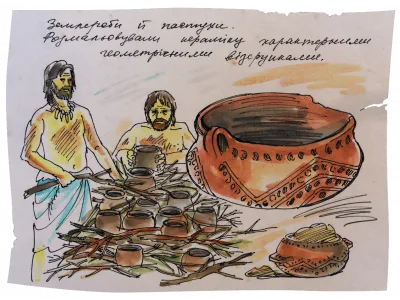 Землероби й пастухи.
Розмальовували кераміку характерними
геометричними візерунками.